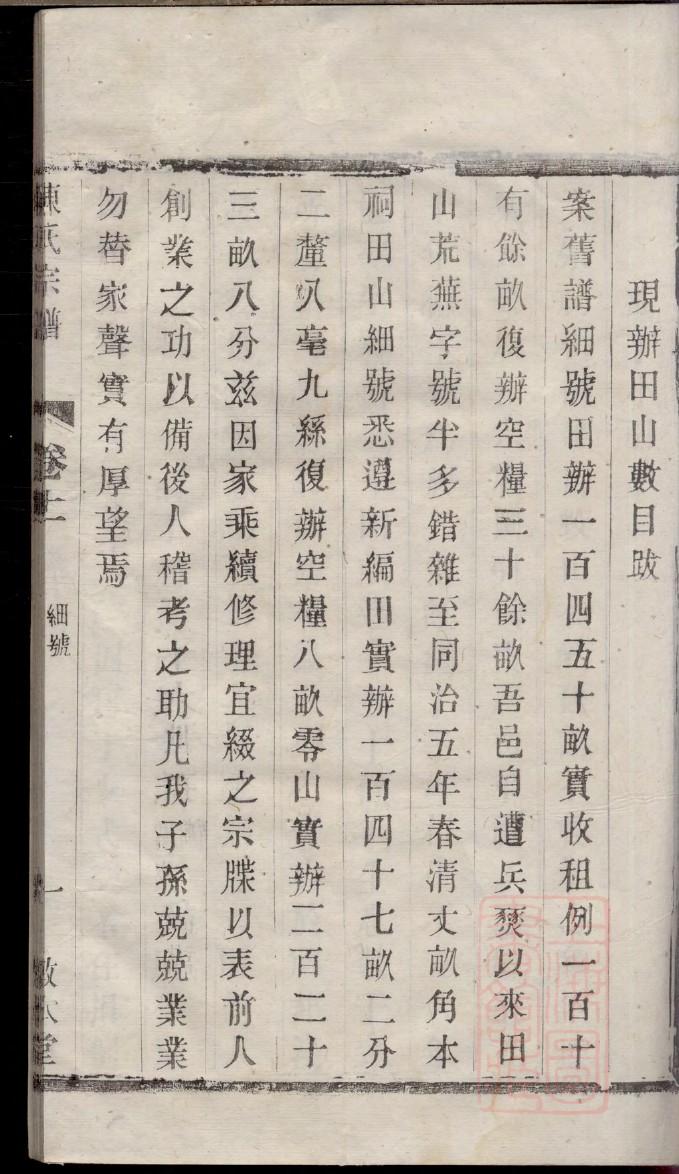 現辦田山數目跋
案舊譜細號田辦一百四五十畝實收租例一百十
有餘畝復辦空糧三十餘畝吾邑自遭兵燹以來田
山荒蕪字號半多錯雜至同治五年春清丈畝角本
祠田山細號悉遵新編田實辦一百四十七畝二分
二釐八毫九絲復辦空糧八畝零山實辦二百二十
三畝八分茲因家乘續修理宜綴之宗牒以表前人
創業之功以備後人稽考之助凡我子孫兢兢業業
勿替家聲實有厚望焉
陳氏宗譜
卷十一
細號
一
敬本堂